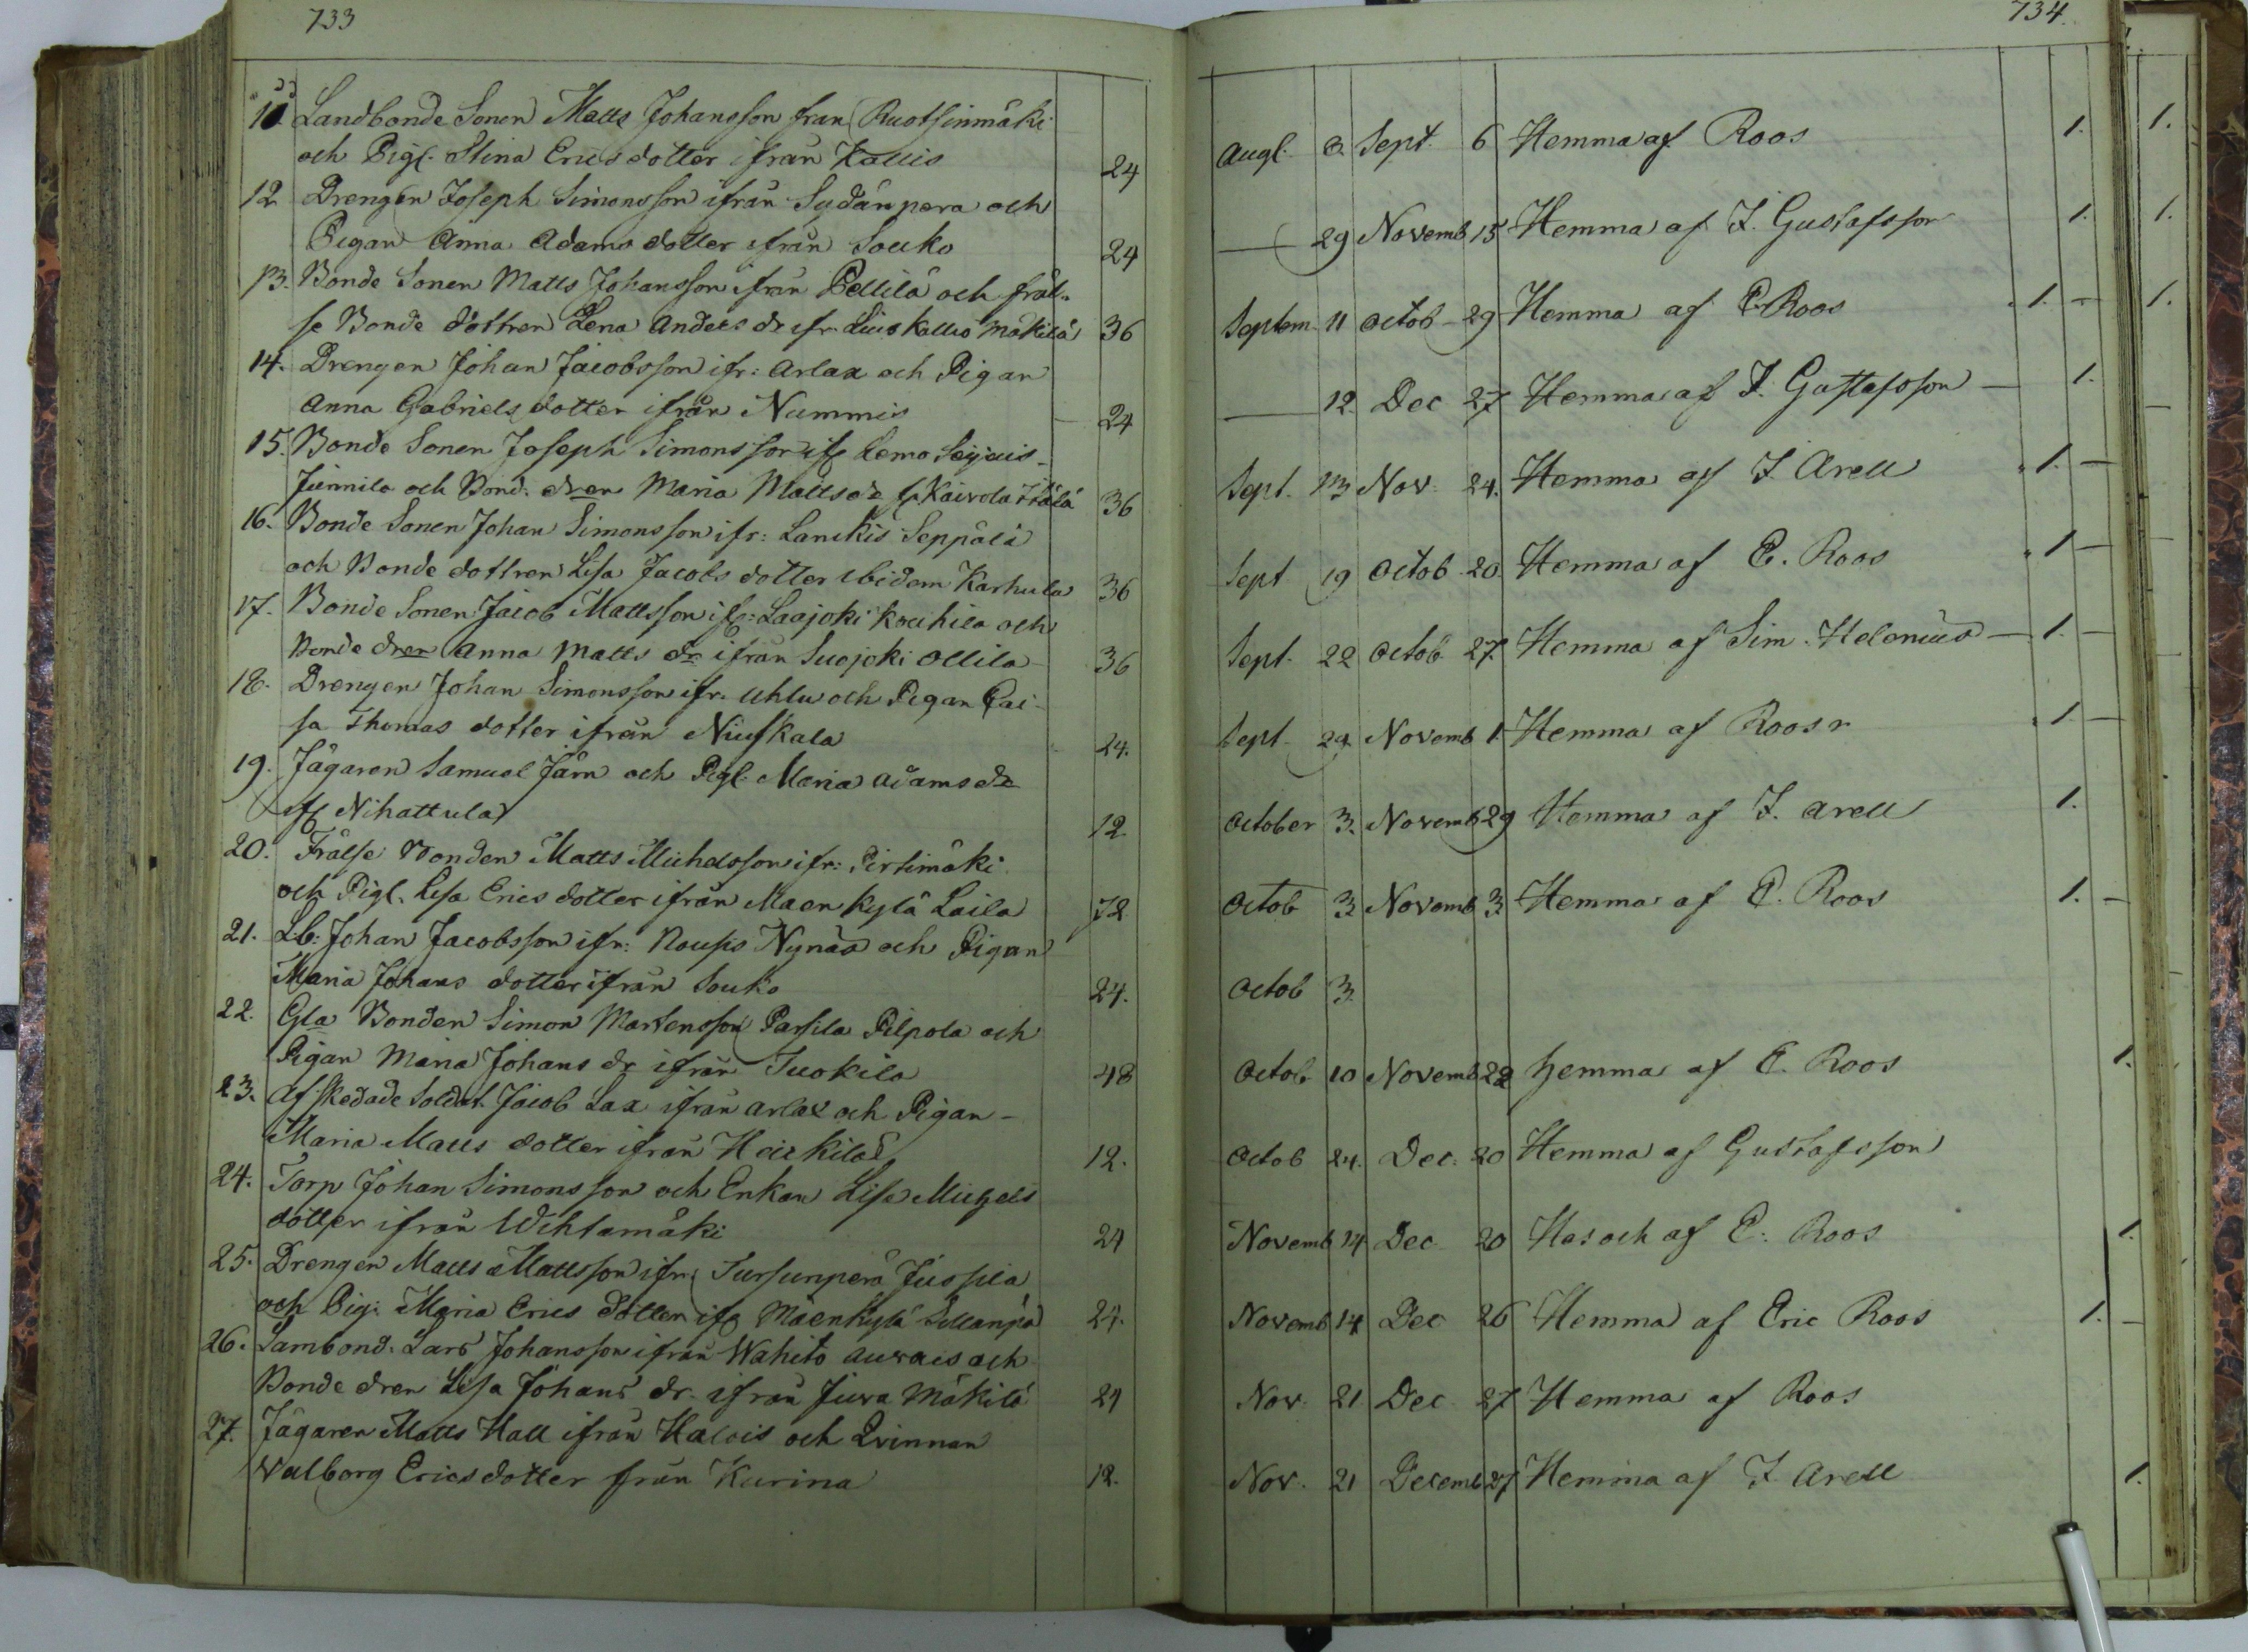 733
11 Landbonde Sonen Matts Johansson från Ruotsinmäki
och Pigl. Stina Erics dotter ifrån Kallis 24
12 Drengen Joseph Simonsson ifrån Sydänpera och
Pigan Anna Adams dotter ifrån Souko 24
13. Bonde Sonen Matts Johansson ifrån Pellilä och fräl-
se Bonde dottren Lena Anders dr ifr. Mäkilä 36
14. Drengen Johan Jacobsson ifr: Arlax och Pigan
Anna Gabriels dotter ifrån Nummis 24
15. Bonde Sonen Joseph Simonsson ifr Lemo
och Bond. dren Maria Matts dr fr Kaivola 36
16. Bonde Sonen Johan Simonsson ifr: Lankis Seppälä
och Bonde dottren Lisa Jacobs dotter ibidem Karhula 36
17. Bonde Sonen Jacob Mattsson ifr: Laajoki Kouhila och
Bonde dren Anna Matts dr ifrån Suojoki Ollila 36
18. Drengen Johan Simonsson ifr. Uhlu och Pigan Cai-
sa Thomas dotter ifrån Niuskala 24.
19. Jägaren Samuel Järn och Pigl. Maria Adams dr
ifr Nihattula 12
20. Frälse Bonden Matts Michelsson ifr: Pirtimäki
och Pigl. Lisa Erics dotter ifrån Maenkylä Laila 72
21. Lb: Johan Jacobsson ifr: Nynäs och Pigan
Maria Johans dotter ifrån Souko 24.
22. Gla Bonden Simon Martensson Parsila Pilpola och
Pigan Maria Johans dr ifrån Tuokila 48
23. Afskedade Soldat. Jacob Lax ifrån Arlax och Pigan
Maria Matts dotter ifrån Heikilä 12.
24. Torp Johan Simonsson och Enkan Lisa Michels
dotter ifrån Wihtamäki 24
25. Drengen Matts Mattsson ifr: Tursunperä Jussila
och Pig: Maria Erics dotter ifr Mäenkylä Sillanpä 24.
26. Lambond: Lars Johansson ifrån Wahito Auvais och
Bonde dren Lisa Johans dr. ifrån Juva Mäkilä 24
27. Jägaren Matts Hall ifrån Halois och Qvinnan
Valborg Erics dotter från Kurina 12.
734.
Augl. 8 Sept. 6 Hemma af Roos 1. 1.
— 29 Novemb 15 Hemma af J. Gustafsson 1. 1.
Septem 11 Octob 29 Hemma af E Roos 1. — 1.
— 12 Dec 27 Hemma af J. Gustafsson — 1.
Sept. 13 Nov. 24. Hemma af J Arell 1. —
Sept 19 Octob 20. Hemma af E. Roos 1 —
Sept. 22 Octob 27. Hemma af Sim. Helenius — 1. —
Sept 24 Novemb 1. Hemma af Roos 1 —
October 3. Novemb 29 Hemma af J. Arell 1.
Octob 3 Novemb 3 Hemma af E. Roos 1. —
Octob 3
Octob 10 Novemb 22 hemma af E. Roos 1.
Octob 24. Dec. 20 Hemma af Gustafsson
Novemb 14 Dec 20 af E. Roos 1.
Novemb 14 Dec 26 Hemma af Eric Roos 1. —
Nov. 21 Dec 27 Hemma af Roos
Nov. 21 Decemb 27 Hemma af J. Arell 1.